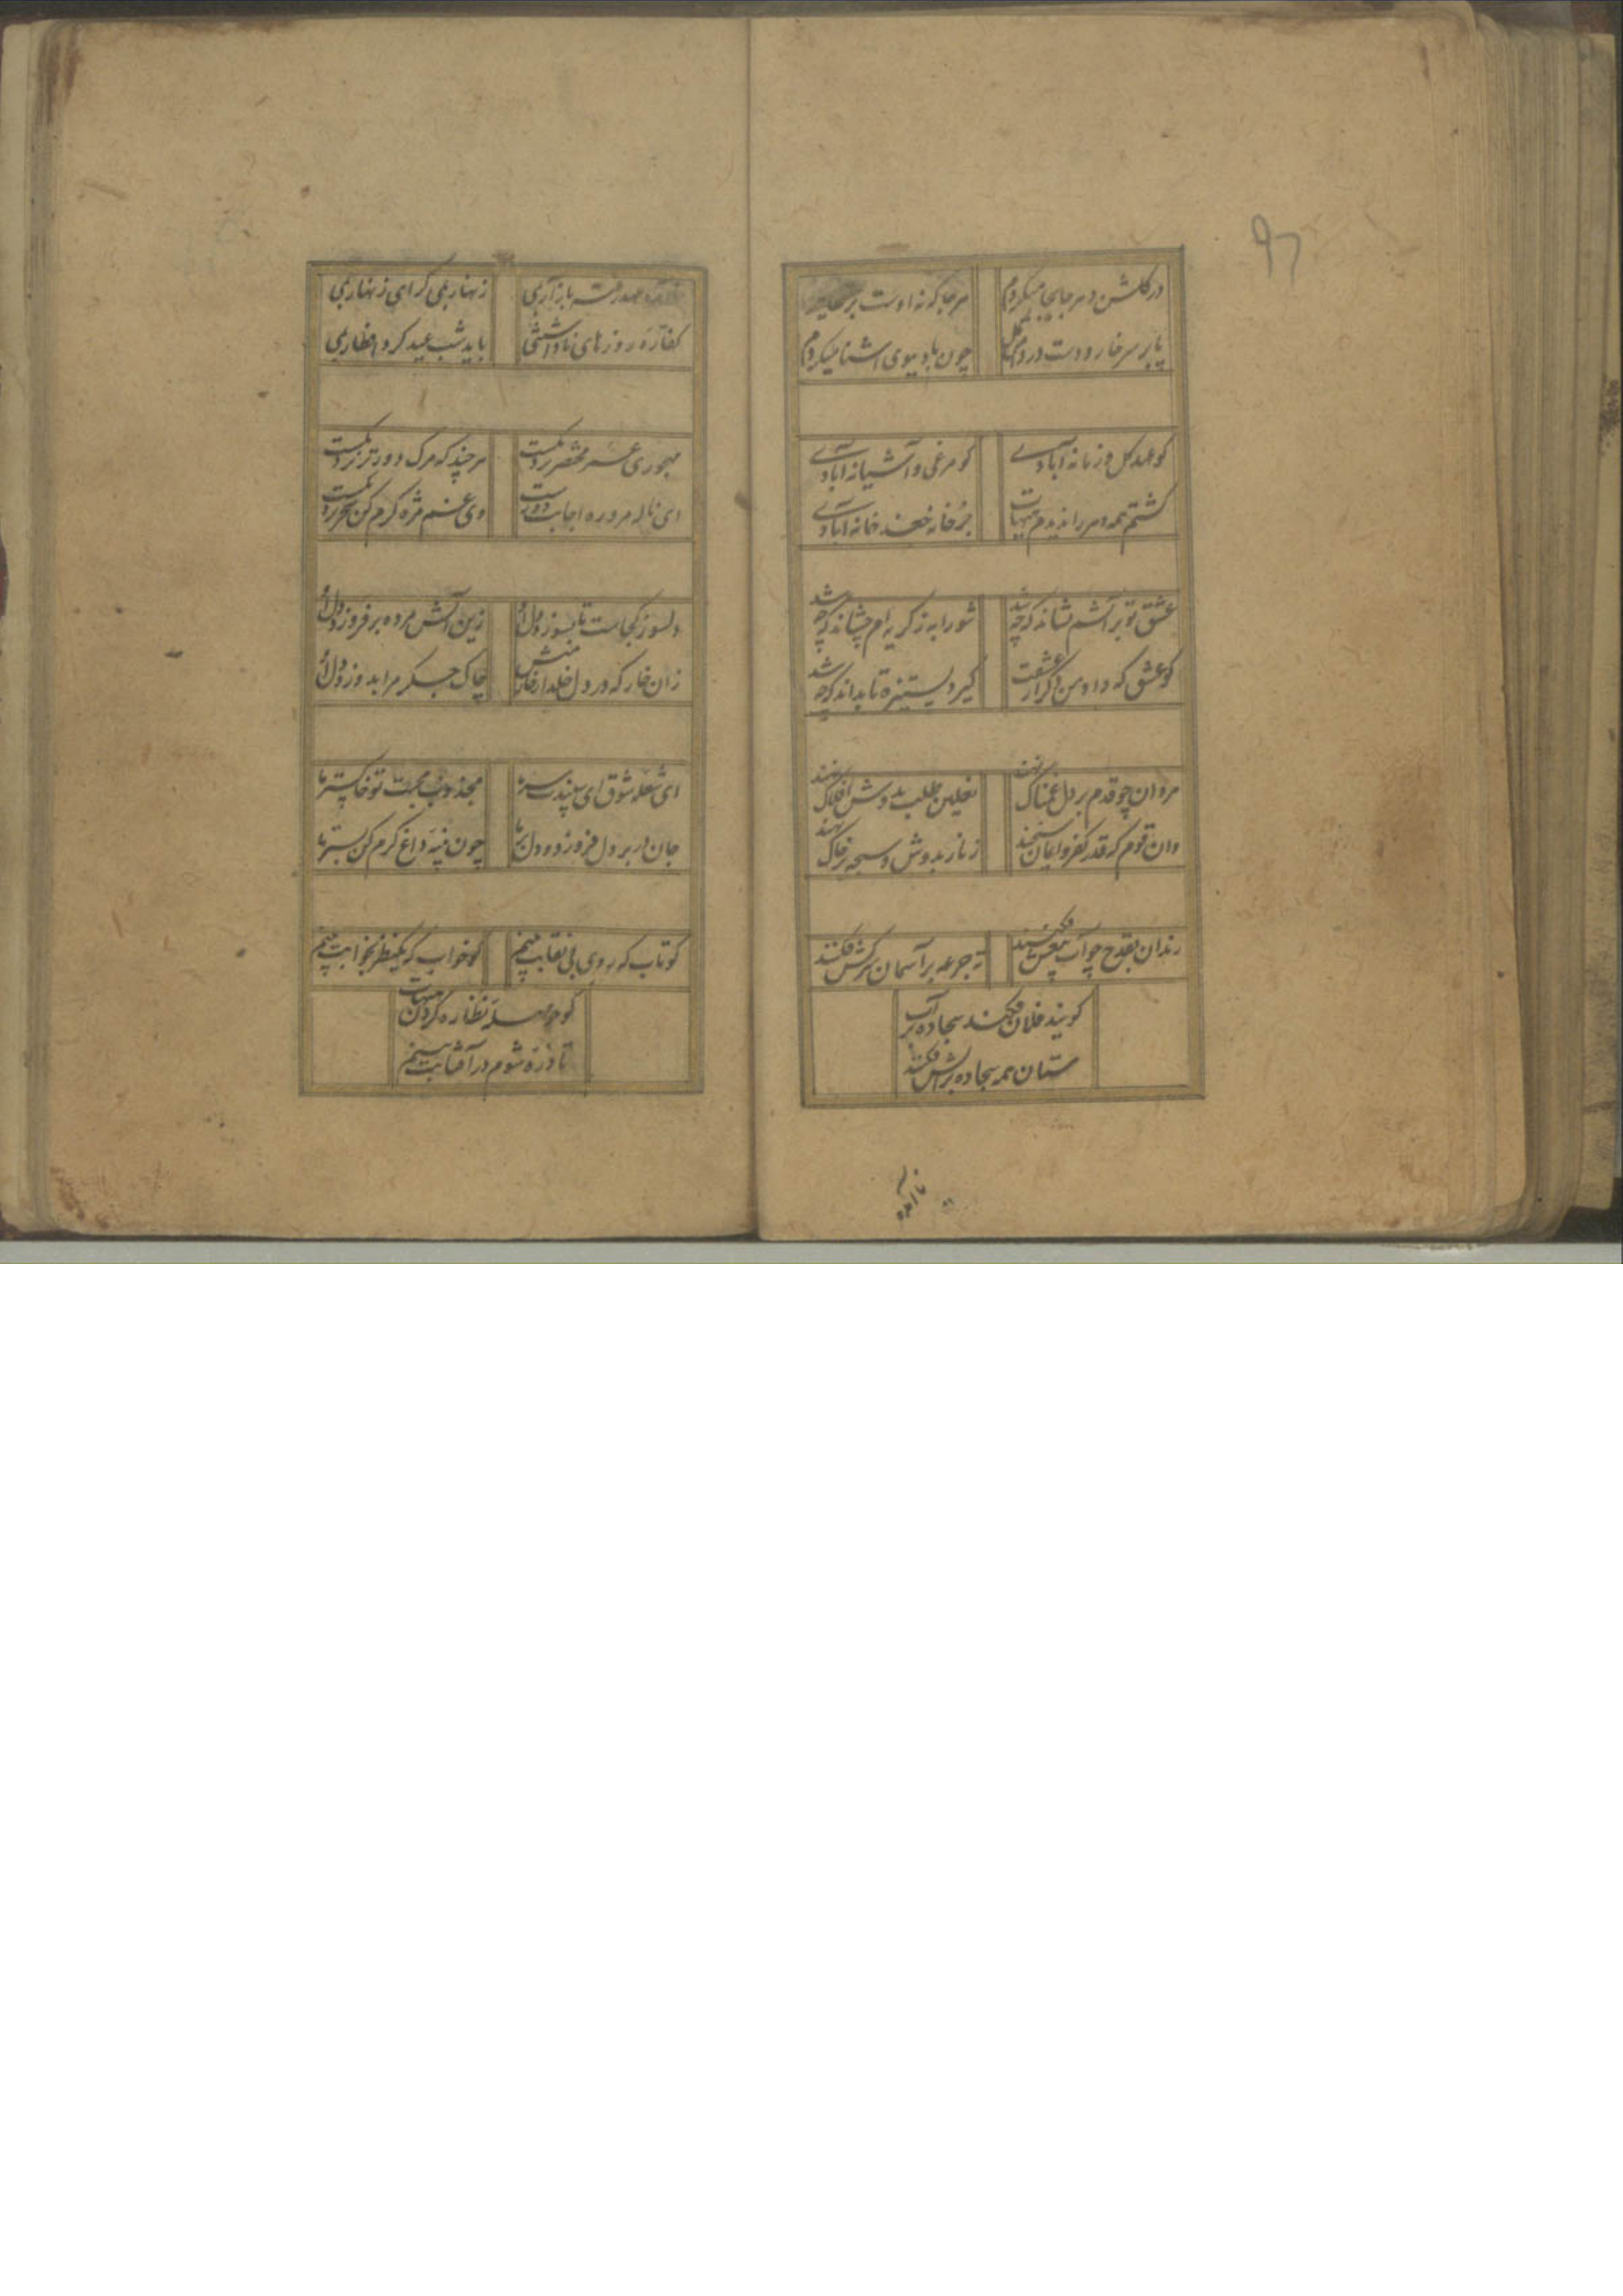 ۹۶
در گلشن دهر جابجا میکردم هر جا که نه اوست
پا بر سر خار و دست در دامن گل چون باد ببوی اشنا میکردم
کو عهد گل و زمانه آبادی کو مرغی و آشیانه آبادی
گشتم همه دهر را ندیدم هیهات جز خانه جغد خانه آبادی
عشق تو بر آتشم نشاند که چه شد شورابه ز گریه ام چشاند که چه شد
کو عشق که داد من گیرد بستیزه تا بداند که چه شد
مردان چو قدم بر دل غمناک نهند نعلین طلب بدوش افلاک نهند
وان قوم که قدر کفر و ایمان سنجند زنار بدوش و سبحه بر خاک نهند
رندان بقدح چو آب بیغش فکنند ته جرعه بر آسمان سرکش فکنند
گویند فلان فکند سجاده بر آب
مستان همه سجاده بر آتش فکنند
باز آر بمی زنهار بمی گرای زنهار بمی
کفاره روزهای ناداشتنی باید شب عید کرد افطار بمی
مهجوری عمر مختصر نزدیکست هر چند که مرگ دورتر نزدیکست
ای ناله مرو ره اجابت دورست وی غم مژه گرم کن سحر نزدیکست
دلسوز کجاست تا بسوزد دل را زین آتش مرده بر فروزد دل را
زان خار که در دل خلد چاک جگر مرا بدوزد دل را
ای شعله شوق ای سپند سر ما مجذوب محبت تو خاکستر ما
جان در بر دل فروز و دود دل بر ما چون پنبه داغ گرم کن بستر ما
کو تاب که روی بی نقابت بینم کو خواب که یکنظر بخوابت بینم
کو حوصله نظاره کردن هیهات
تا ذره شوم در آفتابت بینم